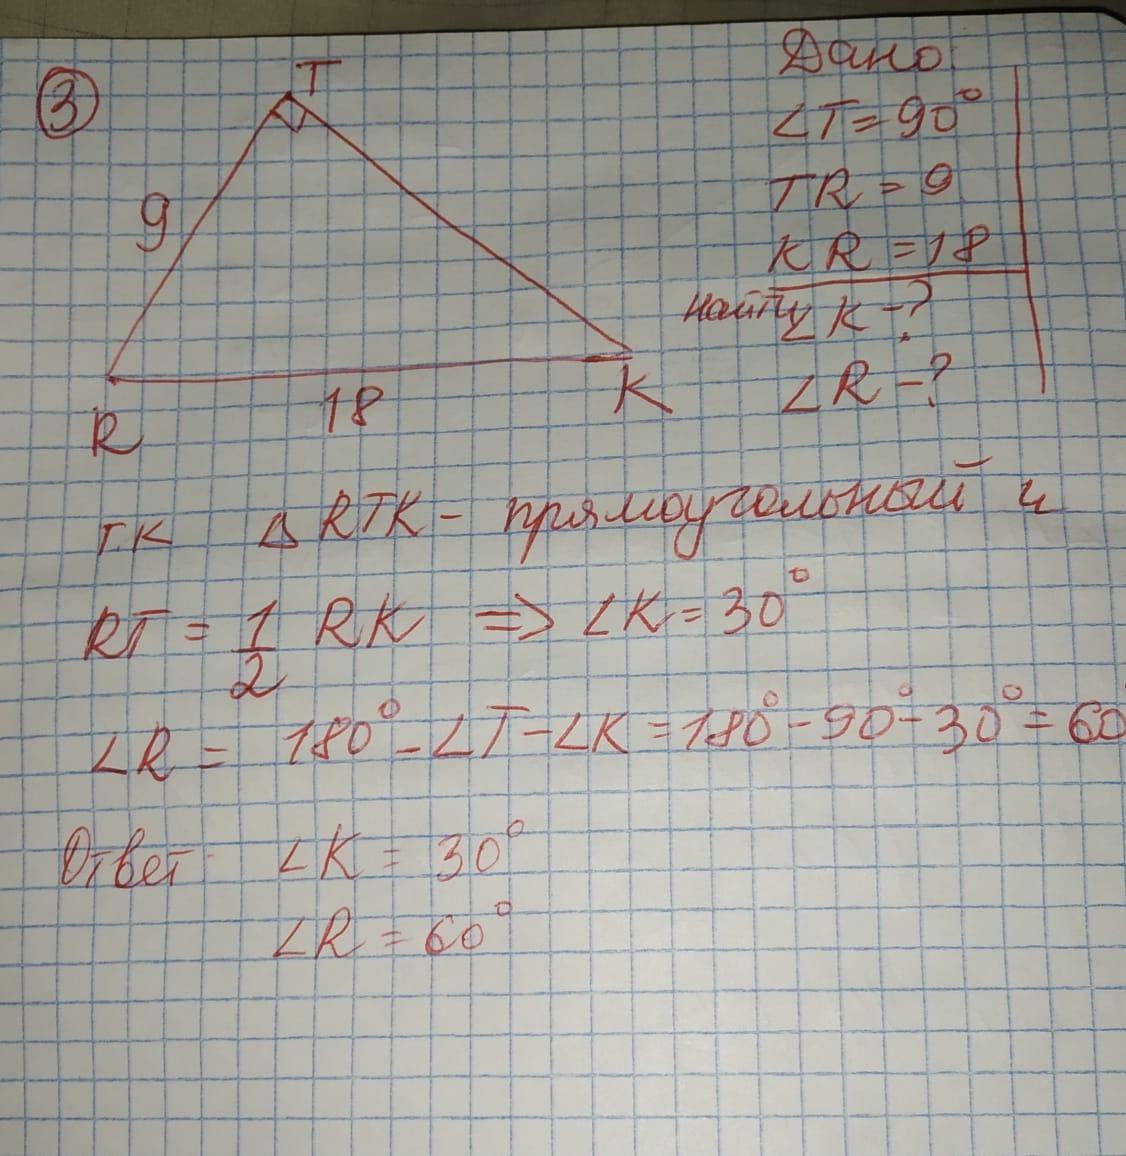 3
T
9
R
18
K
Дано:
∠T = 90°
TR = 9
KR = 18
найти ∠K - ?
∠R - ?
т.к Δ RTK - прямоугольный и
RT = 1/2 RK => ∠K = 30°
∠R = 180° - ∠T - ∠K = 180° - 90° - 30° = 60°
Ответ: ∠K = 30°
∠R = 60°